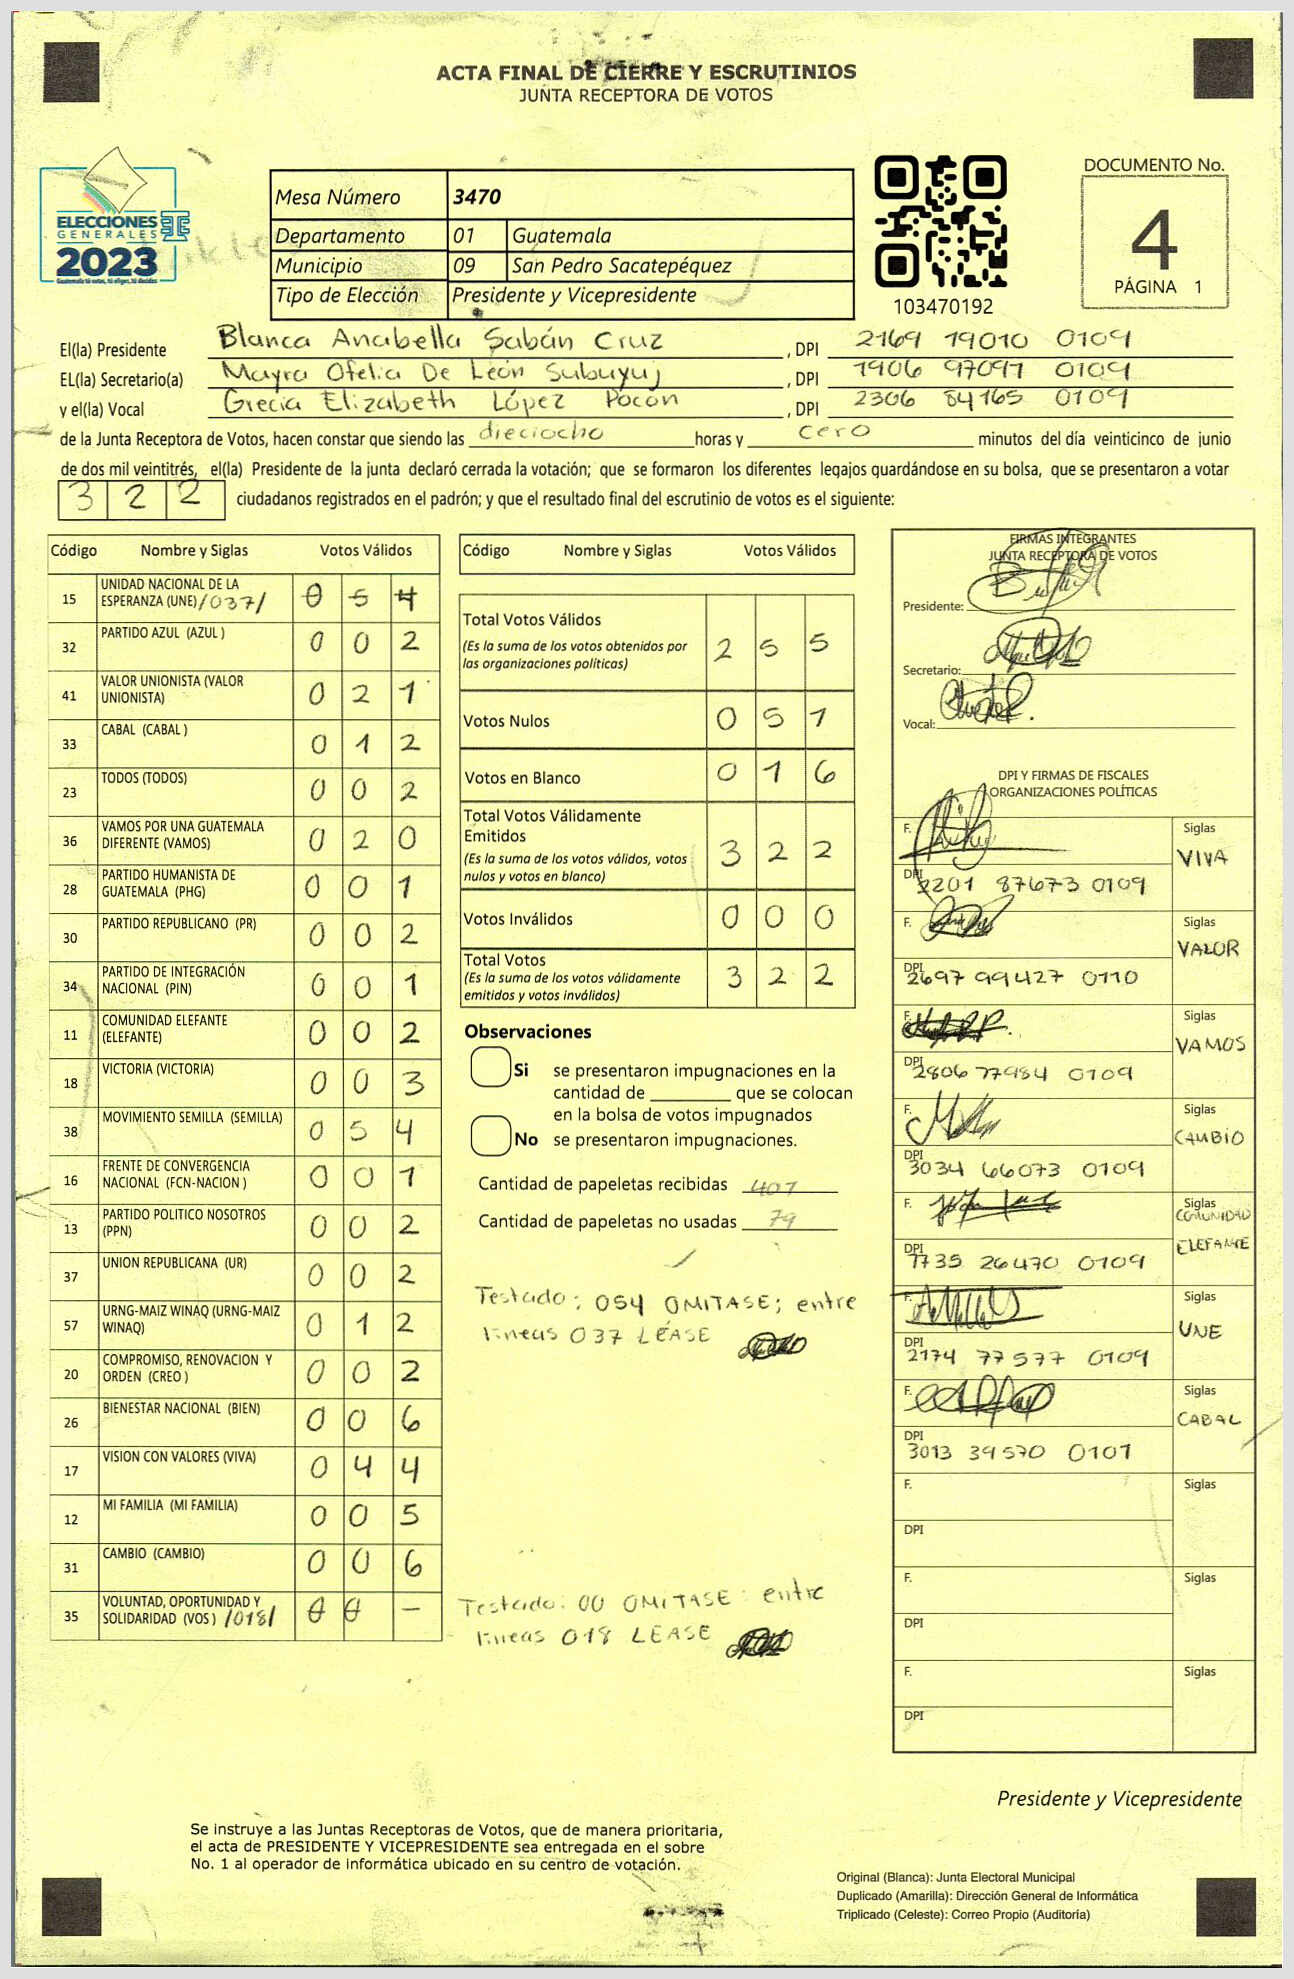 ACTA FINAL DE CIERRE Y ESCRUTINIOS
JUNTA RECEPTORA DE VOTOS
ELECCIONES
GENERALES
2023
Mesa Número 3470
Departamento 01 Guatemala
Municipio 09 San Pedro Sacatepéquez
Tipo de Elección Presidente y Vicepresidente
103470192
DOCUMENTO No.
4
PÁGINA 1
El(la) Presidente Blanca Anabella Sabán Cruz , DPI 2169 19010 0109
EL(la) Secretario(a) Mayra Ofelia De León Subuyuj , DPI 1906 97091 0109
y el(la) Vocal Grecia Elizabeth López Pocón , DPI 2306 84165 0109
de la Junta Receptora de Votos, hacen constar que siendo las dieciocho horas y cero minutos del día veinticinco de junio
de dos mil veintitrés, el(la) Presidente de la junta declaró cerrada la votación; que se formaron los diferentes legajos guardándose en su bolsa, que se presentaron a votar
322 ciudadanos registrados en el padrón; y que el resultado final del escrutinio de votos es el siguiente:
Código Nombre y Siglas Votos Válidos
15 UNIDAD NACIONAL DE LA ESPERANZA (UNE) /037/ 0 5 4
32 PARTIDO AZUL (AZUL ) 0 0 2
41 VALOR UNIONISTA (VALOR UNIONISTA) 0 2 1
33 CABAL (CABAL ) 0 1 2
23 TODOS (TODOS) 0 0 2
36 VAMOS POR UNA GUATEMALA DIFERENTE (VAMOS) 0 2 0
28 PARTIDO HUMANISTA DE GUATEMALA (PHG) 0 0 1
30 PARTIDO REPUBLICANO (PR) 0 0 2
34 PARTIDO DE INTEGRACIÓN NACIONAL (PIN) 0 0 1
11 COMUNIDAD ELEFANTE (ELEFANTE) 0 0 2
18 VICTORIA (VICTORIA) 0 0 3
38 MOVIMIENTO SEMILLA (SEMILLA) 0 5 4
16 FRENTE DE CONVERGENCIA NACIONAL (FCN-NACION ) 0 0 1
13 PARTIDO POLITICO NOSOTROS (PPN) 0 0 2
37 UNION REPUBLICANA (UR) 0 0 2
57 URNG-MAIZ WINAQ (URNG-MAIZ WINAQ) 0 1 2
20 COMPROMISO, RENOVACION Y ORDEN (CREO ) 0 0 2
26 BIENESTAR NACIONAL (BIEN) 0 0 6
17 VISION CON VALORES (VIVA) 0 4 4
12 MI FAMILIA (MI FAMILIA) 0 0 5
31 CAMBIO (CAMBIO) 0 0 6
35 VOLUNTAD, OPORTUNIDAD Y SOLIDARIDAD (VOS ) /018/ 0 0 –
Código Nombre y Siglas Votos Válidos
Total Votos Válidos 2 5 5
(Es la suma de los votos obtenidos por
las organizaciones políticas)
Votos Nulos 0 5 1
Votos en Blanco 0 1 6
Total Votos Válidamente
Emitidos 3 2 2
(Es la suma de los votos válidos, votos
nulos y votos en blanco)
Votos Inválidos 0 0 0
Total Votos 3 2 2
(Es la suma de los votos válidamente
emitidos y votos inválidos)
Observaciones
Si se presentaron impugnaciones en la
cantidad de ________ que se colocan
en la bolsa de votos impugnados
No se presentaron impugnaciones.
Cantidad de papeletas recibidas 401
Cantidad de papeletas no usadas 79
Testado: 054 OMITASE; entre
lineas 037 LÉASE
Testado: 00 OMITASE: entre
lineas 018 LEASE
FIRMAS INTEGRANTES
JUNTA RECEPTORA DE VOTOS
Presidente:
Secretario:
Vocal:
DPI Y FIRMAS DE FISCALES
ORGANIZACIONES POLÍTICAS
F. Siglas VIVA
DPI 2201 87673 0109
F. Siglas VALOR
DPI 2697 99427 0110
F. Siglas VAMOS
DPI 2806 77984 0109
F. Siglas CAMBIO
DPI 3034 66073 0109
F. Siglas COMUNIDAD ELEFANTE
DPI 1735 26470 0109
F. Siglas UNE
DPI 2174 77577 0109
F. Siglas CABAL
DPI 3013 39570 0101
F. Siglas
DPI
F. Siglas
DPI
F. Siglas
DPI
Presidente y Vicepresidente
Se instruye a las Juntas Receptoras de Votos, que de manera prioritaria,
el acta de PRESIDENTE Y VICEPRESIDENTE sea entregada en el sobre
No. 1 al operador de informática ubicado en su centro de votación.
Original (Blanca): Junta Electoral Municipal
Duplicado (Amarilla): Dirección General de Informática
Triplicado (Celeste): Correo Propio (Auditoría)